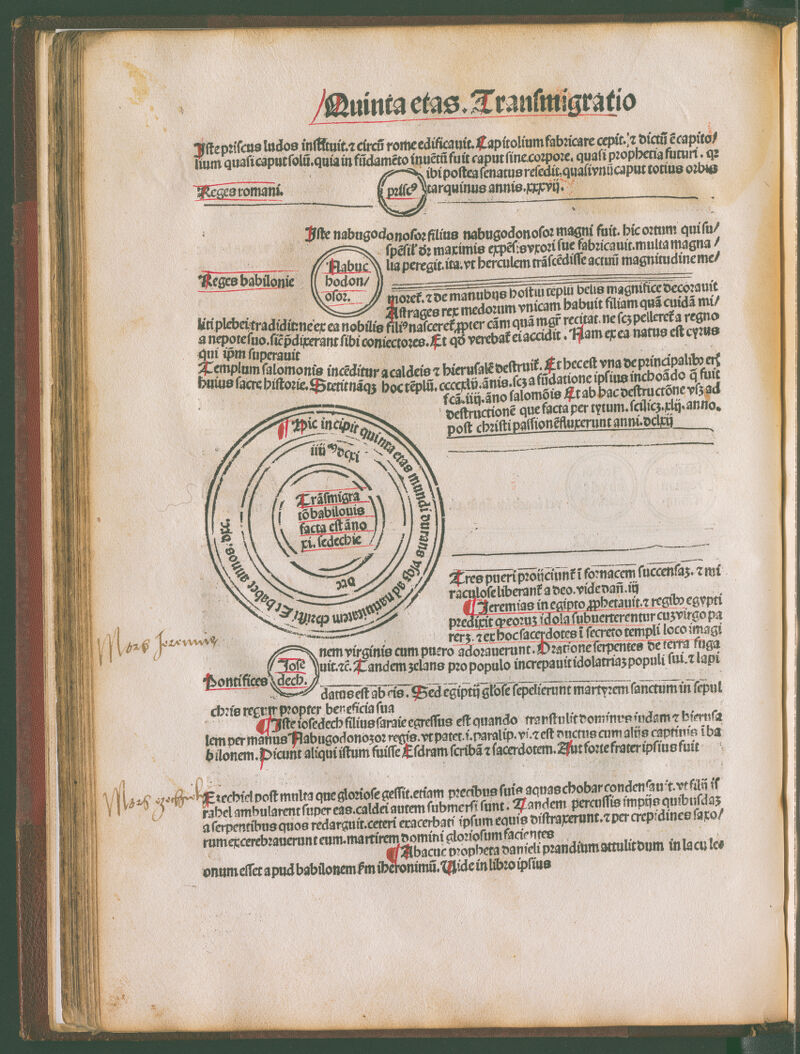 Quinta etas. Transmigratio
Iste priscus ludos instituit. ⁊ circū rome edificauit. Capitolium fabricare cepit. ⁊ dictū ē capito/
lium quasi caput solū. quia in fūdamēto inuētū fuit caput sine corpore, quasi prophetia futuri. qꝛ
ibi postea senatus resedit. quasi vnū caput totius orbis
Reges romani.
prisc⁹
tarquinus annis. xxxvij.
Iste nabugodonosor filius nabugodonosor magni fuit. hic ortum qui su/
Nabuc
hodon/
osor.
Reges babilonie
lia peregit. ita. vt herculem trāscēdisse actuū magnitudine me/
moret̄. ⁊ de manubijs hostiū tēplū belis magnifice decorauit
Astrages rex medorum vnicam habuit filiam quā cuidā mi/
liti plebei tradidit: ne ex ea nobilis fili⁹ nasceret̄.
a nepote suo. sic p̄dixerant sibi coniectores. Et qđ verebat̄ ei accidit. Nam ex ea natus est cyrus
qui ip̄m superauit
Templum salomonis incēditur a caldeis ⁊ hierusalē destruit̄. Et hec est vna de principalibꝰ
huius sacre historie. Stetit nāqꝫ hoc tēplū. ccccxlij. ānis. scꝫ a fūdatione ipsius inchoādo q̄ fuit
fcā. iiij. āno salomōis Et ab hac destructōne vsqꝫ ad
destructionē que facta per tytum. scilicꝫ. xlij. anno.
post christi passionē fluxerunt anni. dclxij
Hic incipit quinta etas mundi durans vsqꝫ ad natiuitatem christi Et habet annos. dxc.
iiij ᵐ dcxi
Trāsmigra
tō babilonis
facta est āno
xi. sedechie
dxc
Tres pueri proijciunt̄ ī fornacem succensaꝫ. ⁊ mi
raculose liberant̄ a deo. vide dañ. iij
Jeremias in egipto ꝓphetauit. ⁊ regibꝰ egypti
predixit qꝫ eoruꝫ idola subuerterentur cuꝫ virgo pa
reꝫ. ⁊ ex hoc sacerdotes ī secreto templi loco imagi
Mors Jeremie
nem virginis cum puero adorauerunt. Oratione serpentes de terra fuga
uit. ⁊c̄. Tandem zelans pro populo increpauit idolatriaꝫ populi sui. ⁊ lapi
Jose
dech.
Pontifices
datus est ab eis. Sed egiptij glōse sepelierunt martyrem sanctum in sepul
chris regum propter beneficia sua
Iste iosedech filius saraie egressus est quando transtulit dominus iudam ⁊ hierusa
lem per manus Nabugodonozor regis. vt patet. i. paralip. vi. ⁊ est ductus cum alijs captiuis ī ba
bilonem. Dicunt aliqui istum fuisse Esdram scribā ⁊ sacerdotem. Aut forte frater ipsius fuit
Mors ezechielis
Ezechiel post multa que gloriose gessit. etiam precibus suis aquas chobar condensauit. vt filij is
rahel ambularent super eas. caldei autem submersi sunt. Tandem percussis impijs quibusdaꝫ
a serpentibus quos redarguit. ceteri exacerbati ipsum equis distraxerunt. ⁊ per crepidines saxo/
rum excerebrauerunt eum. martirem domini gloriosum facientes
Abacuc propheta danieli prandium attulit dum in lacu leo
onum esset apud babilonem fm̄ iheronimū. Uide in libro ipsius